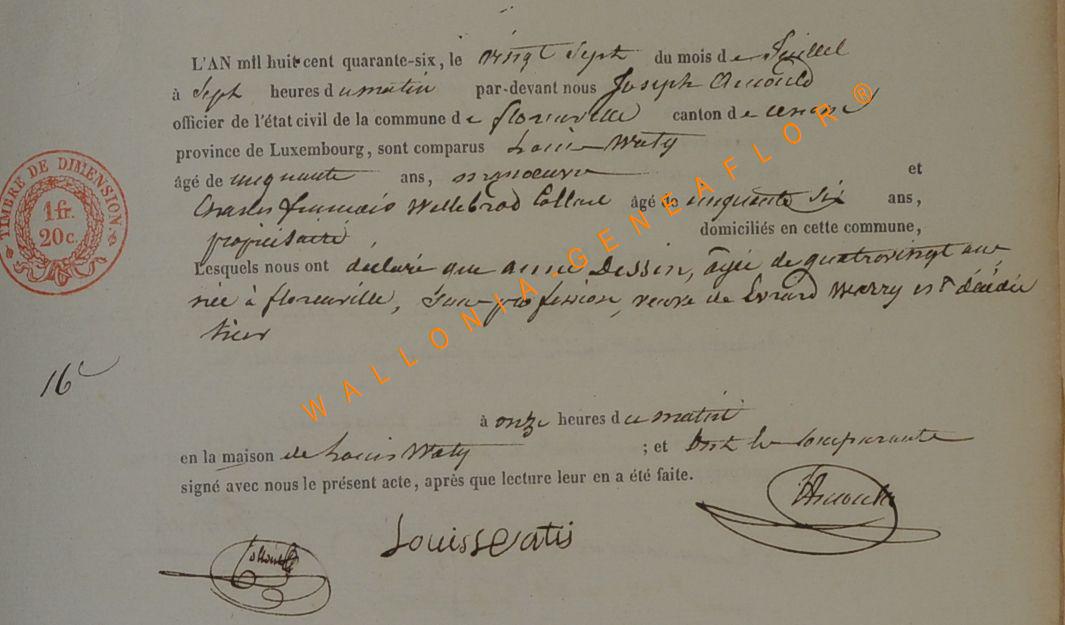 L'AN mil huit cent quarante-six, le vingt Sept du mois de Juillet
à Sept heures du matin par-devant nous Joseph Arnould
officier de l'état civil de la commune de florenville canton de
province de Luxembourg, sont comparus Louis Waty
âgé de cinquante ans, manoeuvre et
Charles francois Willebrod âgé de cinquante Six ans,
propriétaire, domiciliés en cette commune,
Lesquels nous ont declaré que anne Dessin, âgée de quatrevingt ans
née à florenville, Sans profession, veuve de Evrard Warry est décédée
hier
16e
à onze heures du matin
en la maison de Louis Waty ; et ont les comparants
signé avec nous le présent acte, après que lecture leur en a été faite.
Louis Watis
TIMBRE DE DIMENSION.
1 fr.
20 c.
WALLONIA-GENEAFLOR®